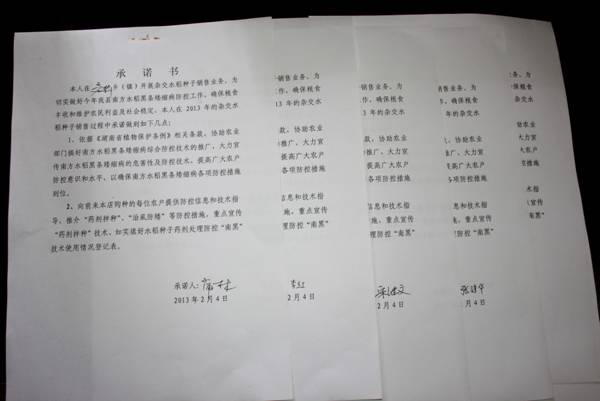 承 诺 书
本人在 乡(镇)开展杂交水稻种子销售业务,为
切实做好今年我县南方水稻黑条矮缩病防控工作,确保粮食
丰收和维护农民利益及社会稳定,本人在 2013 年的杂交水
稻种子销售过程中承诺做到如下几点:
1、依据《湖南省植物保护条例》相关条款,协助农业
部门搞好南方水稻黑条矮缩病综合防控技术的推广、大力宣
传南方水稻黑条矮缩病的危害性及防控技术,提高广大农户
防控意识和水平,以确保南方水稻黑条矮缩病各项防控措施
到位。
2、向前来本店购种的每位农户提供防控信息和技术指
导、推介“药剂拌种”、“治虱防矮”等防控措施,重点宣传
“药剂拌种”技术,如实填好水稻种子药剂处理防控“南黑”
技术使用情况登记表。
承诺人:
2013 年 2 月 4 日
种子销售业务,为
工作,确保粮食
3 年的杂交水
款,协助农业
推广、大力宣
提高广大农户
各项防控措施
信息和技术指
施,重点宣传
理防控“南黑”
2 月 4 日
销售业务,为
作,确保粮食
年的杂交水
,协助农业
广、大力宣
高广大农户
项防控措施
息和技术指
,重点宣传
防控“南黑”
月 4 日
售业务,为
,确保粮食
年的杂交水
协助农业
、大力宣
高广大农户
项防控措施
和技术指
重点宣传
防控“南黑”
月 4 日